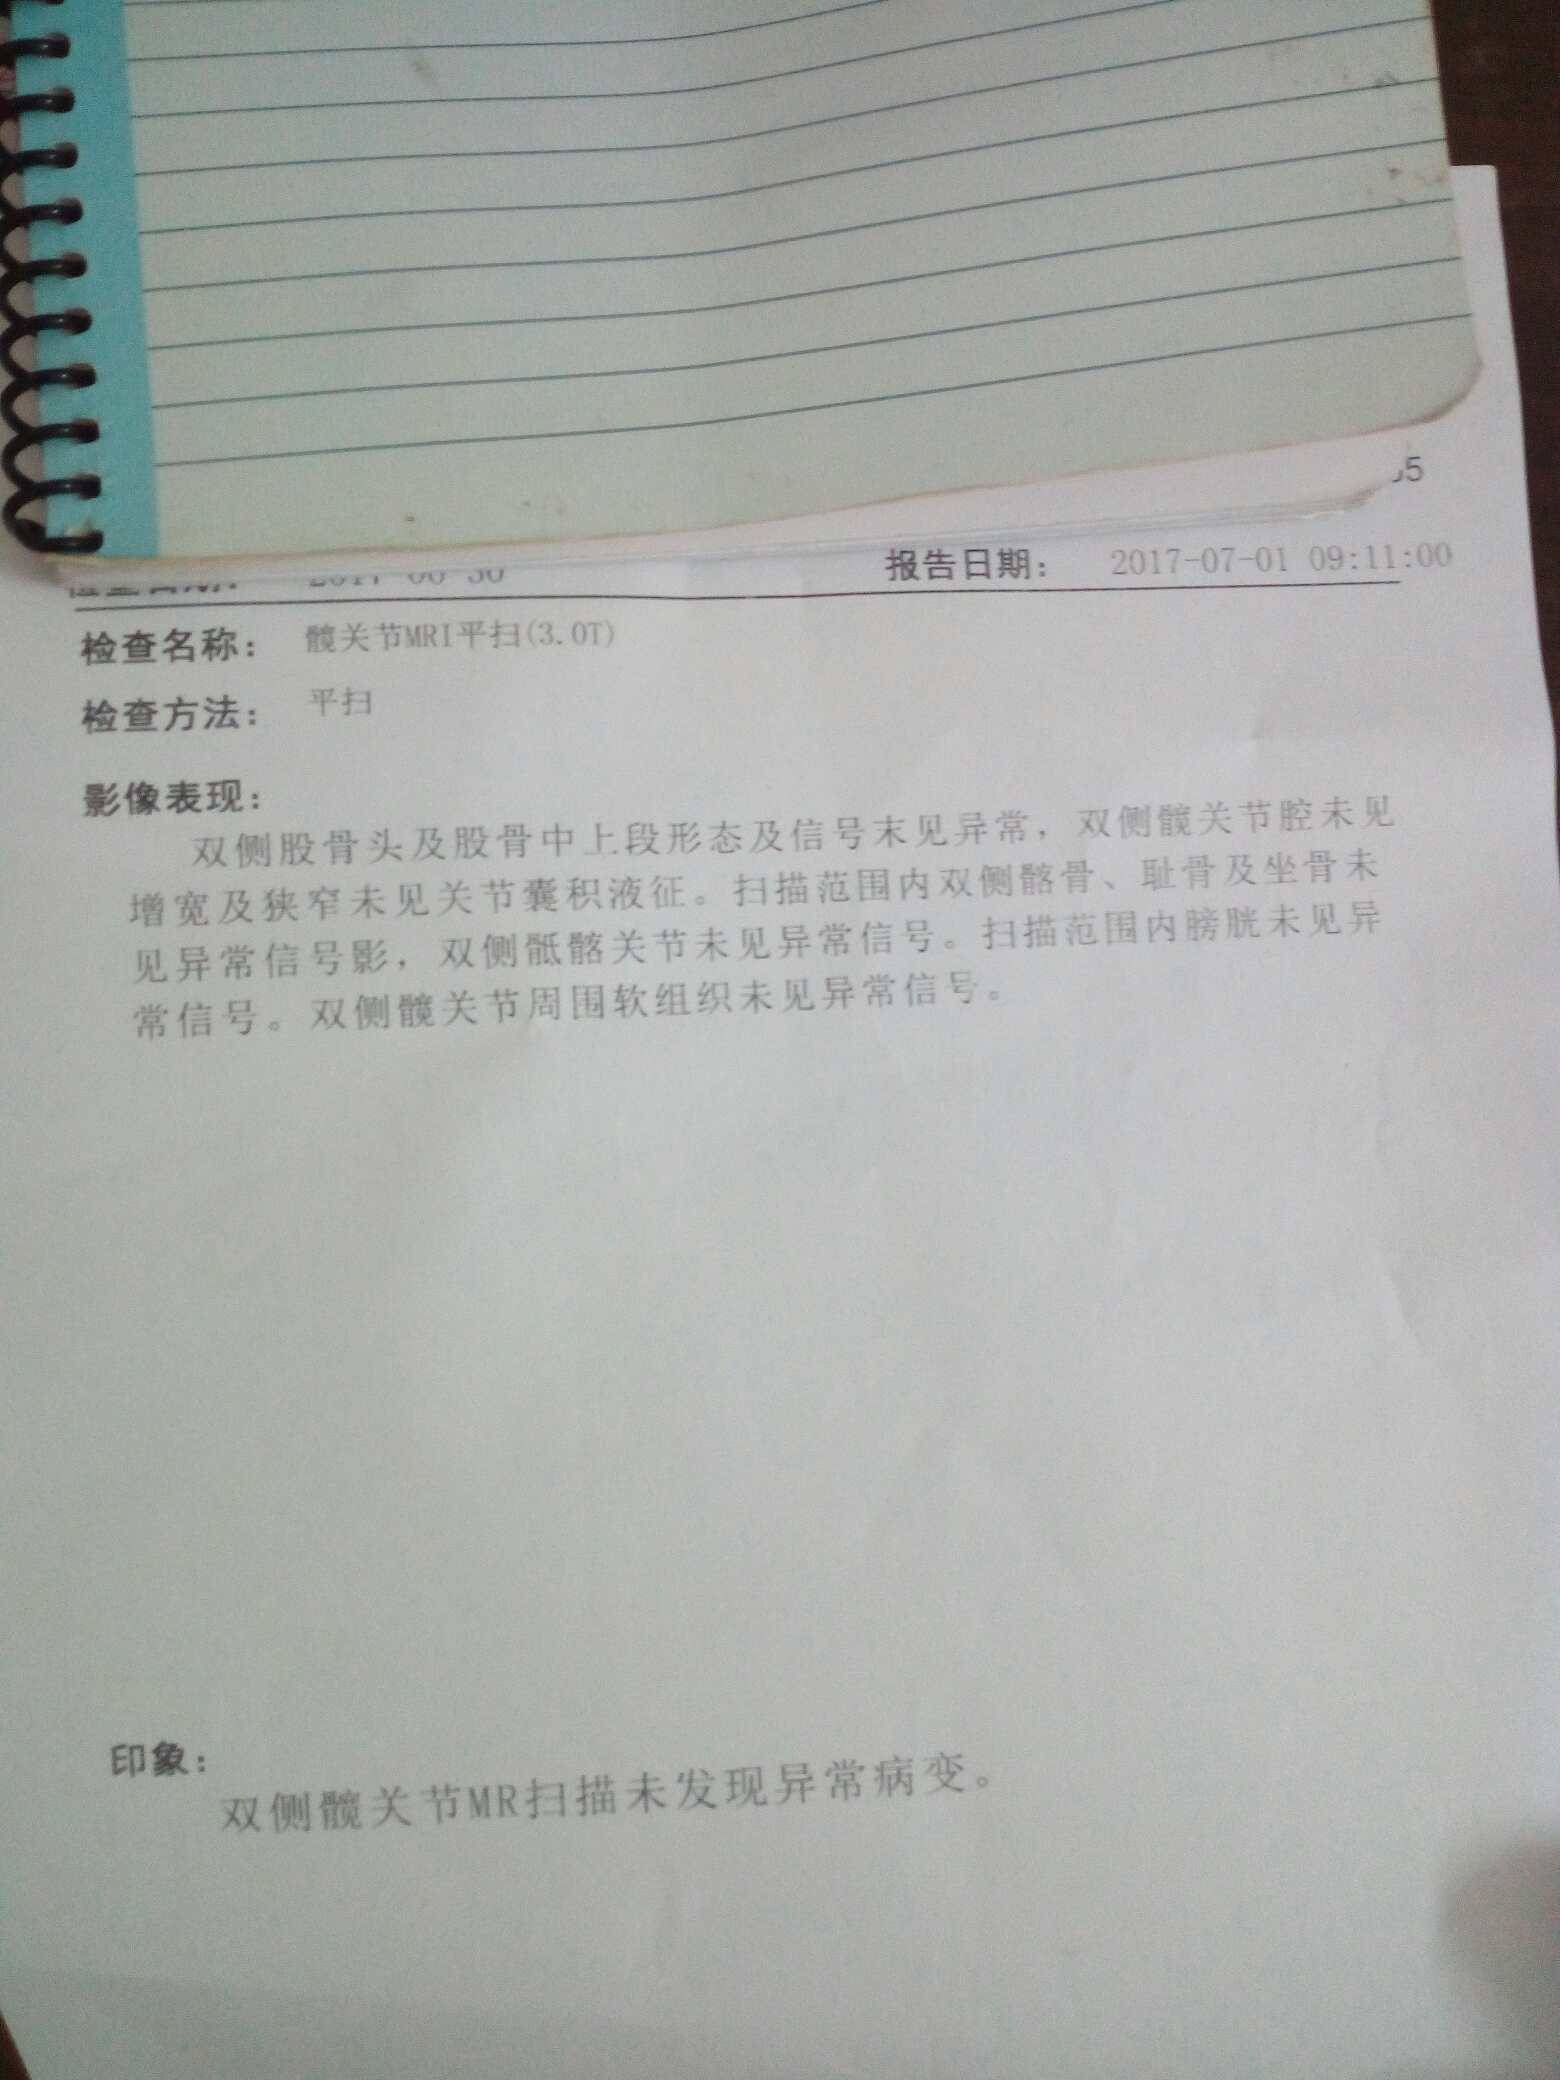 05
报告日期： 2017-07-01 09:11:00
检查名称： 髋关节MRI平扫(3.0T)
检查方法： 平扫
影像表现：
双侧股骨头及股骨中上段形态及信号末见异常，双侧髋关节腔未见
增宽及狭窄未见关节囊积液征。扫描范围内双侧髂骨、耻骨及坐骨未
见异常信号影，双侧骶髂关节未见异常信号。扫描范围内膀胱未见异
常信号。双侧髋关节周围软组织未见异常信号。
印象：
双侧髋关节MR扫描未发现异常病变。